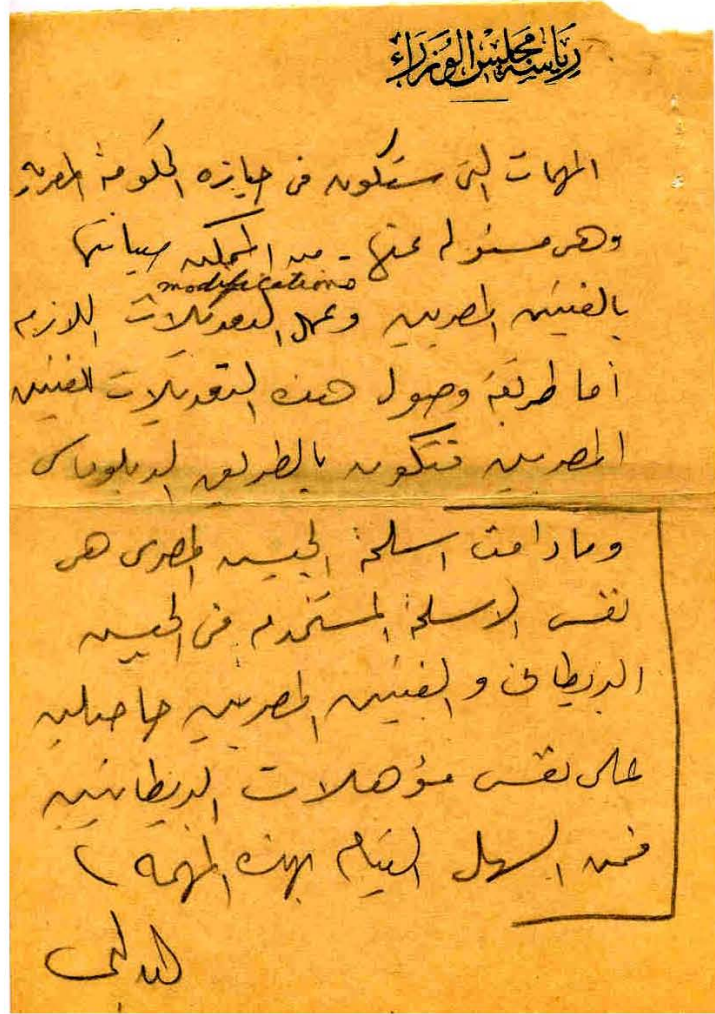 رياسة مجلس الوزراء
المهمات التى ستكون فى حيازة الحكومة المصرية
وهى مسئولة عنها - من الممكن صيانتها
modifications
بالفنيين المصريين وعمل التعديلات اللازمة
أما طريقة وصول هذه التعديلات للفنيين
المصريين فتكون بالطريق الدبلوماسى
وما دامت اسلحة الجيش المصرى هى
نفس الاسلحة المستخدمة فى الجيش
البريطانى والفنيين المصريين حاصلين
على نفس مؤهلات البريطانيين
فمن السهل القيام بهذه المهمة )